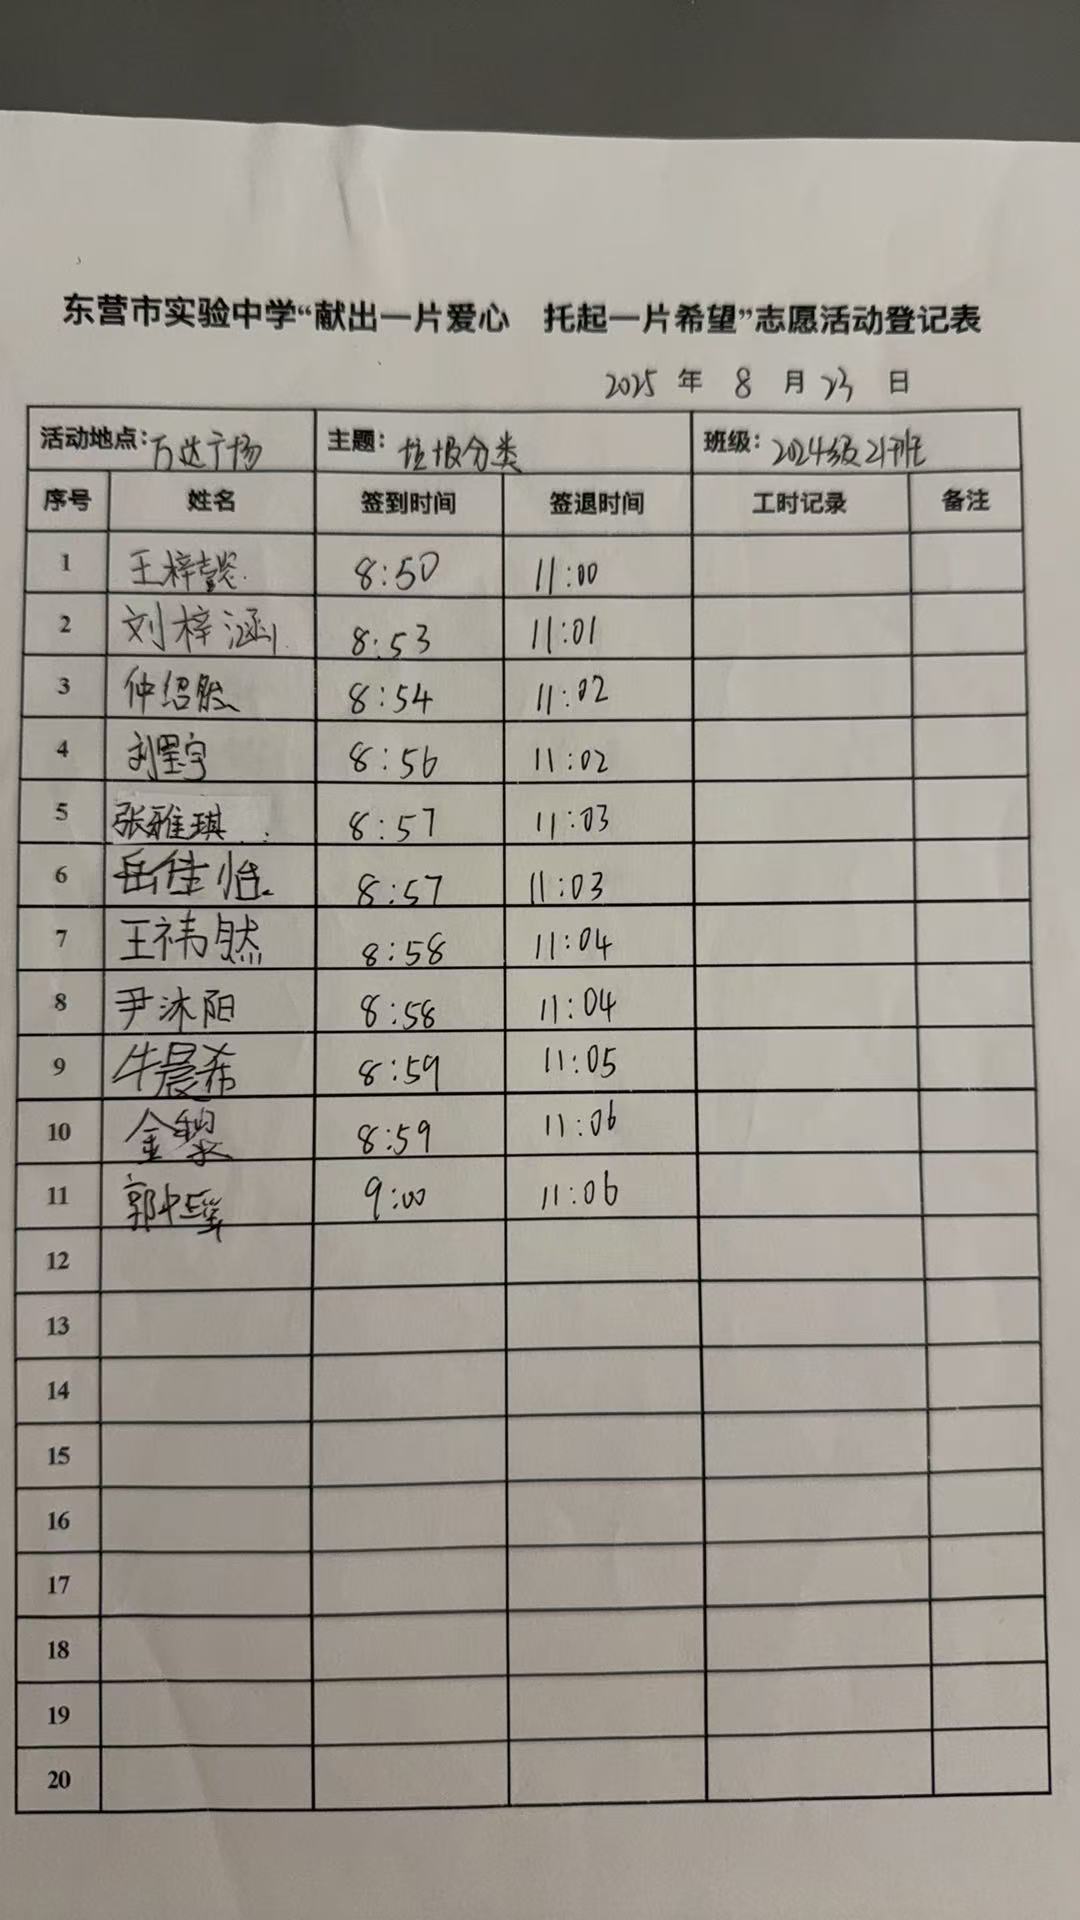 东营市实验中学“献出一片爱心 托起一片希望”志愿活动登记表
2025 年 8 月 23 日
活动地点：万达广场 主题：垃圾分类 班级：2024级21班
序号 姓名 签到时间 签退时间 工时记录 备注
1 王梓懿 8:50 11:00
2 刘梓涵 8:53 11:01
3 仲绍然 8:54 11:02
4 刘墨宇 8:56 11:02
5 张雅琪 8:57 11:03
6 岳佳怡 8:57 11:03
7 王祎然 8:58 11:04
8 尹沐阳 8:58 11:04
9 牛晨希 8:59 11:05
10 金黎 8:59 11:06
11 9:00 11:06
12
13
14
15
16
17
18
19
20